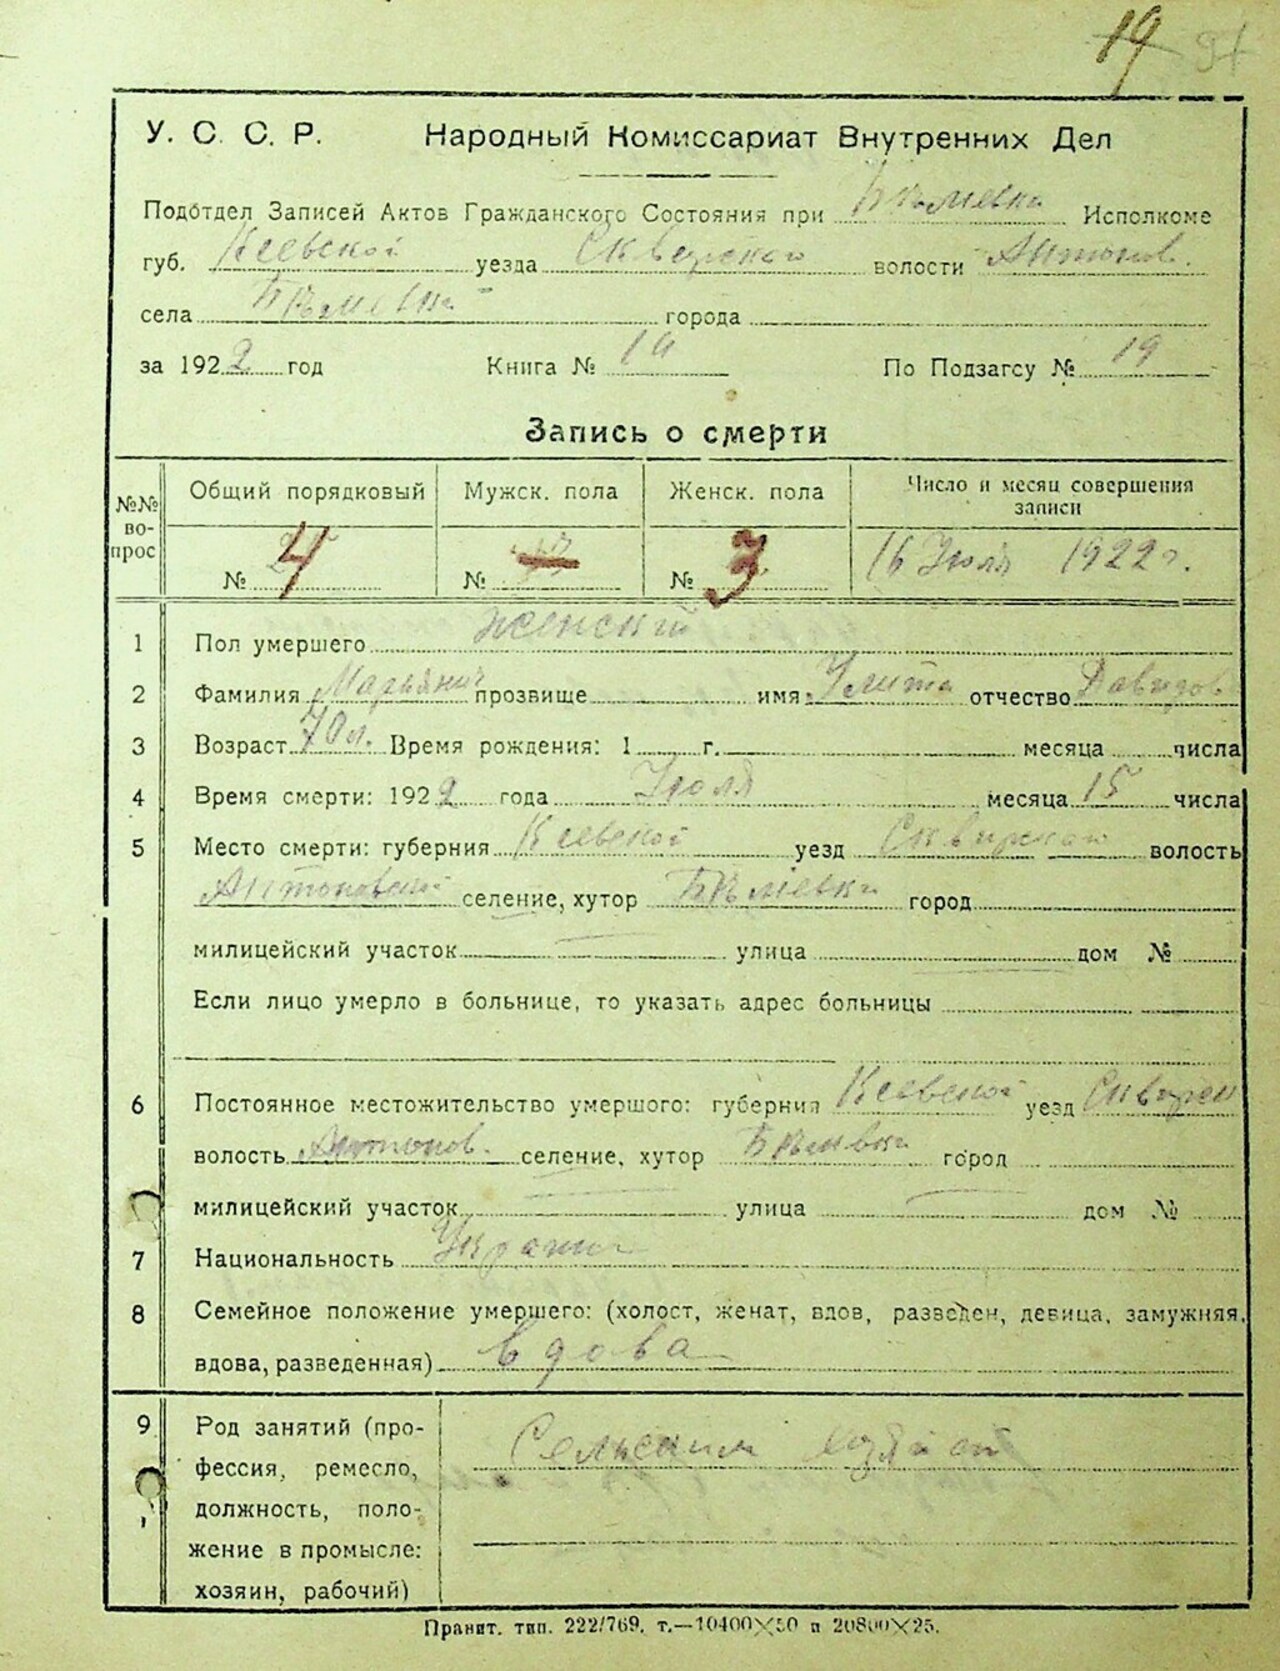 19 91
У. С. С. Р. Народный Комиссариат Внутренних Дел
Подотдел Записей Актов Гражданского Состояния при Исполкоме
губ. Киевской уезда Сквирского волости Антонов.
села города
за 1922 год Книга № 19 По Подзагсу № 19
Запись о смерти
№№ вопрос Общий порядковый Мужск. пола Женск. пола Число и месяц совершения записи
№ 4 № № 3 16 Июля 1922 г.
1 Пол умершего женский
2 Фамилия прозвище имя Улита отчество Давидов
3 Возраст 70 л. Время рождения: 1 г. месяца числа
4 Время смерти: 1922 года Июля месяца 15 числа
5 Место смерти: губерния Киевской уезд Сквирского волость
Антоновской селение, хутор город
милицейский участок улица дом №
Если лицо умерло в больнице, то указать адрес больницы
6 Постоянное местожительство умершого: губерния Киевской уезд Сквирск
волость Антонов. селение, хутор город
милицейский участок улица дом №
7 Национальность
8 Семейное положение умершего: (холост, женат, вдов, разведен, девица, замужняя,
вдова, разведенная) вдова
9 Род занятий (про-
фессия, ремесло,
должность, поло-
жение в промысле:
хозяин, рабочий)
Сельским
Правит. тип. 222/769. т.—10400×50 и 20800×25.